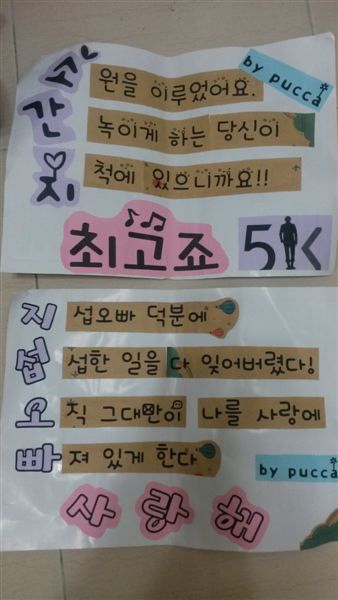 소 원을 이루었어요. by pucca
간 녹이게 하는 당신이
지 척에 있으니까요!!
최고죠 51K
지 섭오빠 덕분에
섭 섭한 일을 다 잊어버렸다!
오 직 그대만이 나를 사랑에
빠 져 있게 한다
by pucca
사랑해